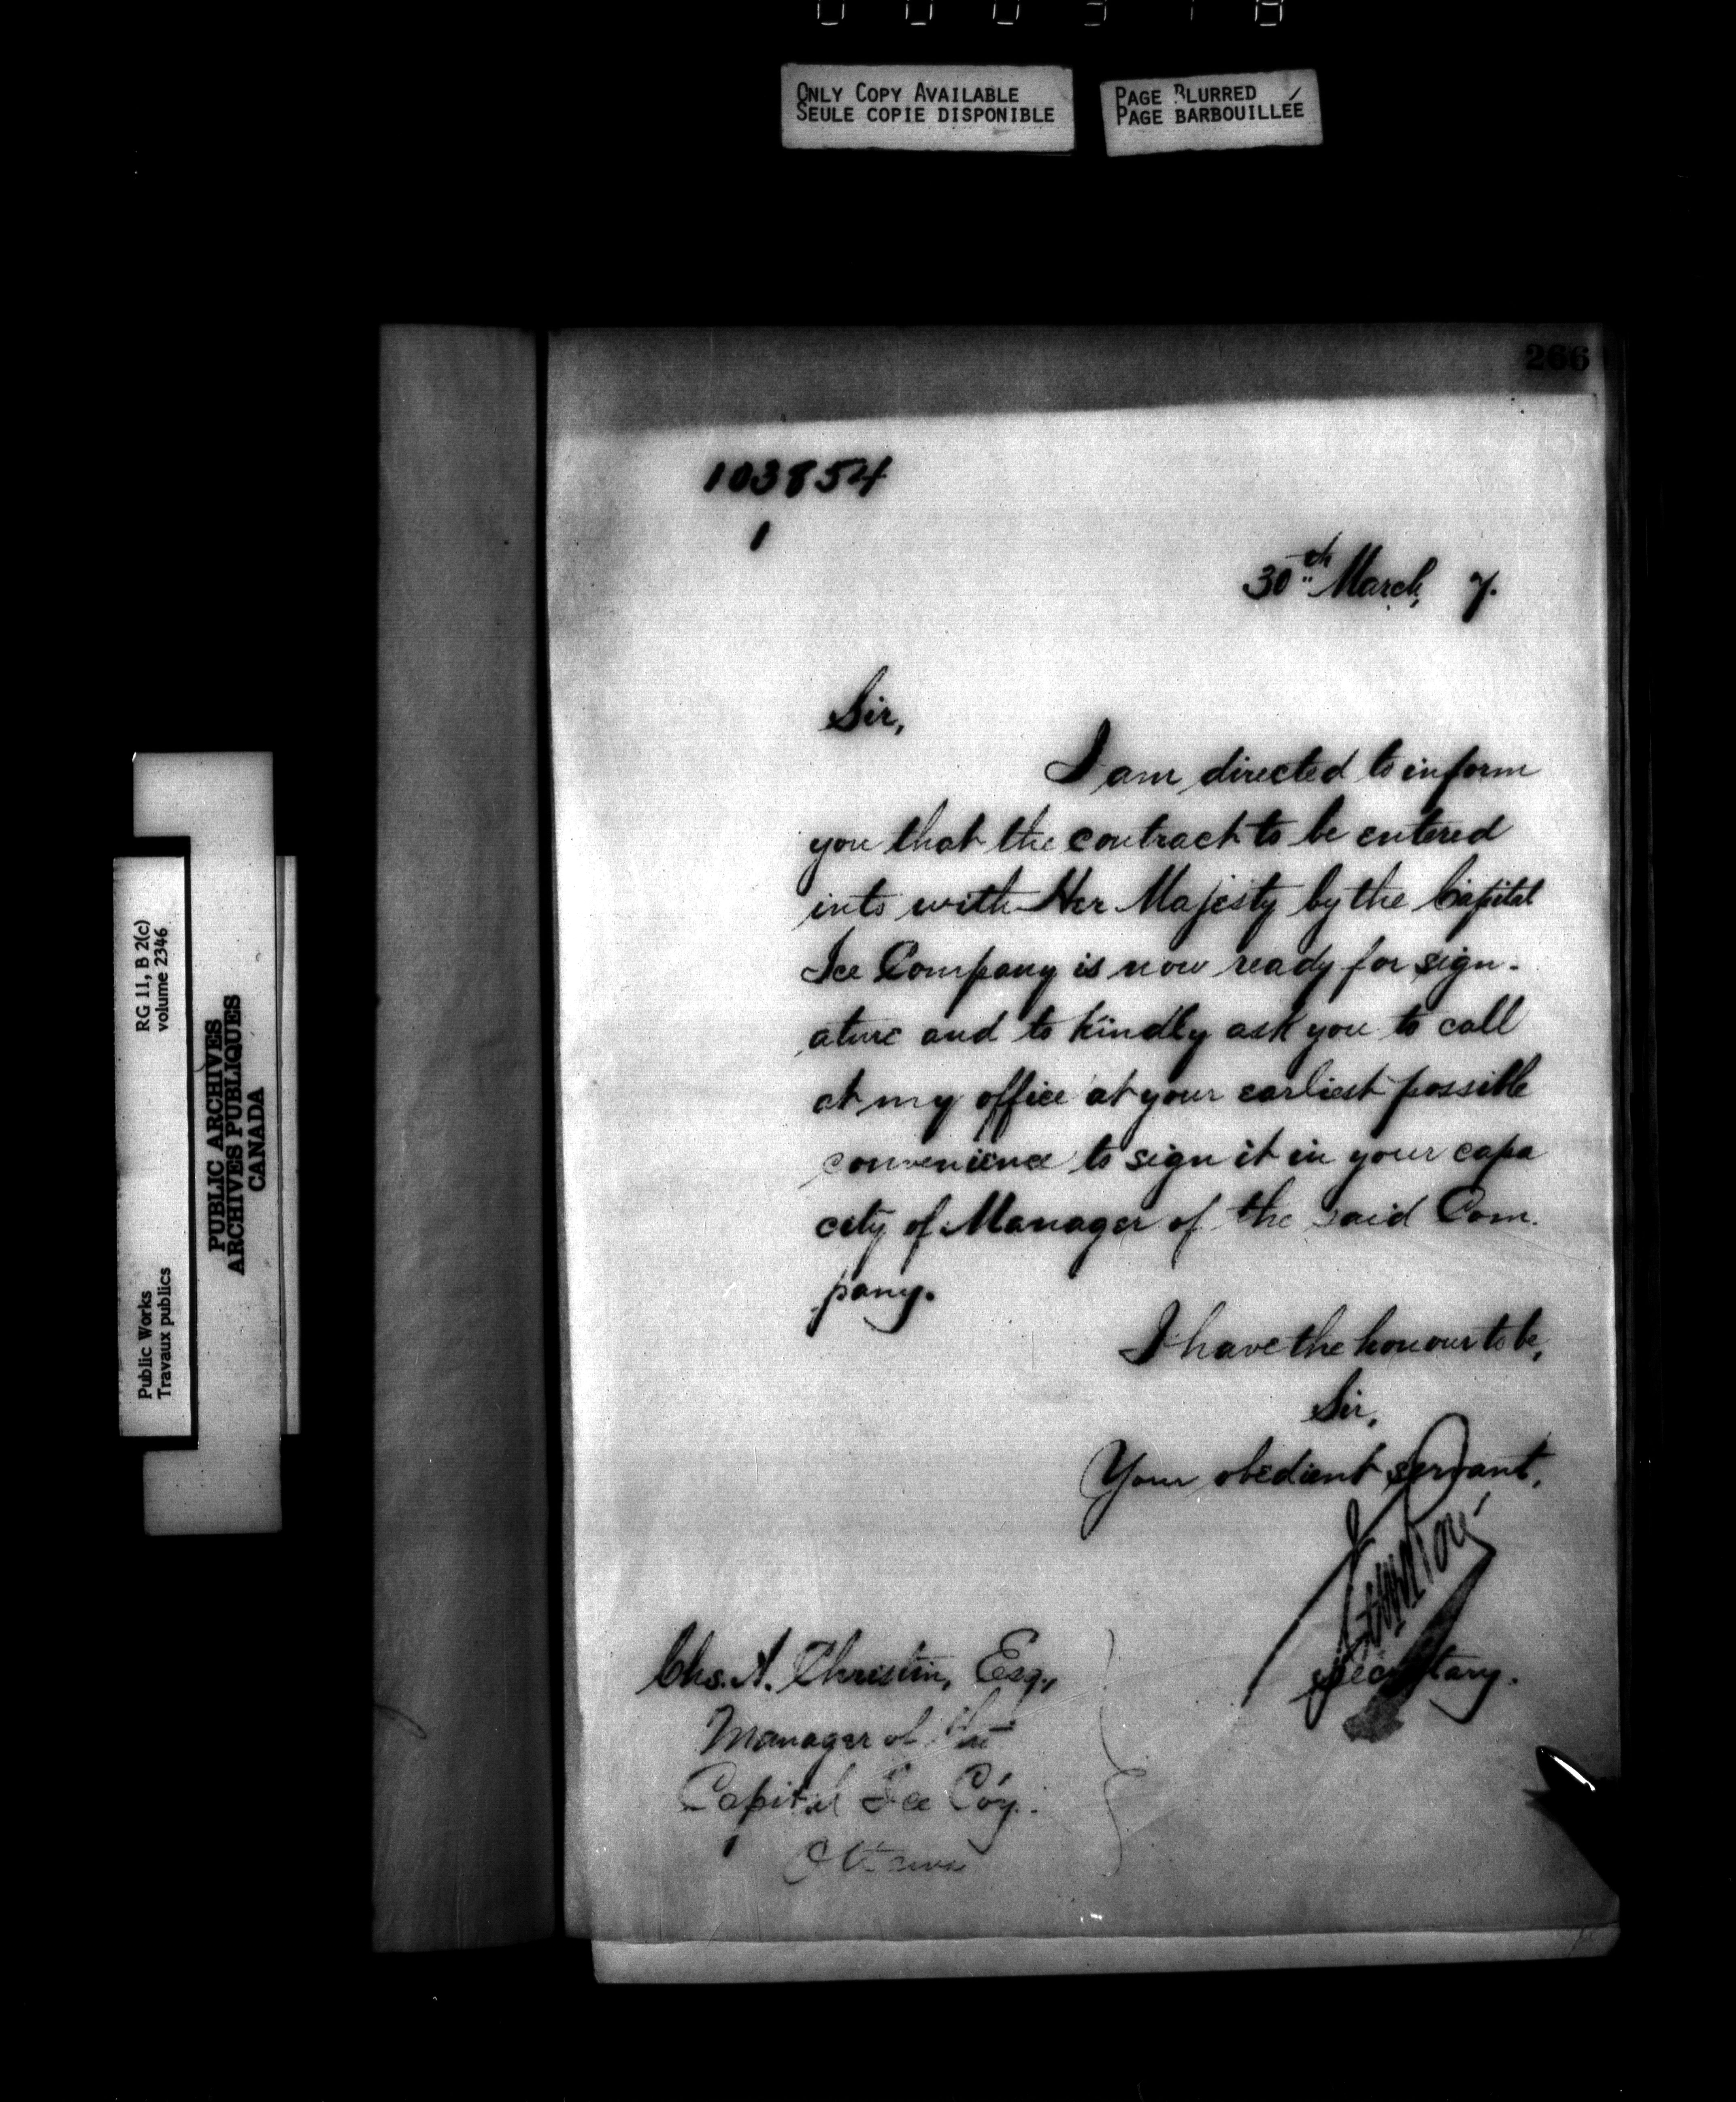 ONLY COPY AVAILABLE
SEULE COPIE DISPONIBLE
PAGE BLURRED
PAGE BARBOUILLÉE
266
103854
1
30th March, 7.
Sir,
I am directed to inform
you that the contract to be entered
into with Her Majesty by the Capital
Ice Company is now ready for sign-
ature and to kindly ask you to call
at my office at your earliest possible
convenience to sign it in your capa
city of Manager of the said Com-
pany.
I have the honour to be,
Sir,
Your obedient servant,
Secretary.
Chs. A. Christin, Esq.,
Manager of the
Capital Ice Co'y.
Ottawa
RG 11, B 2(c)
volume 2346
Public Works
Travaux publics
PUBLIC ARCHIVES
ARCHIVES PUBLIQUES
CANADA